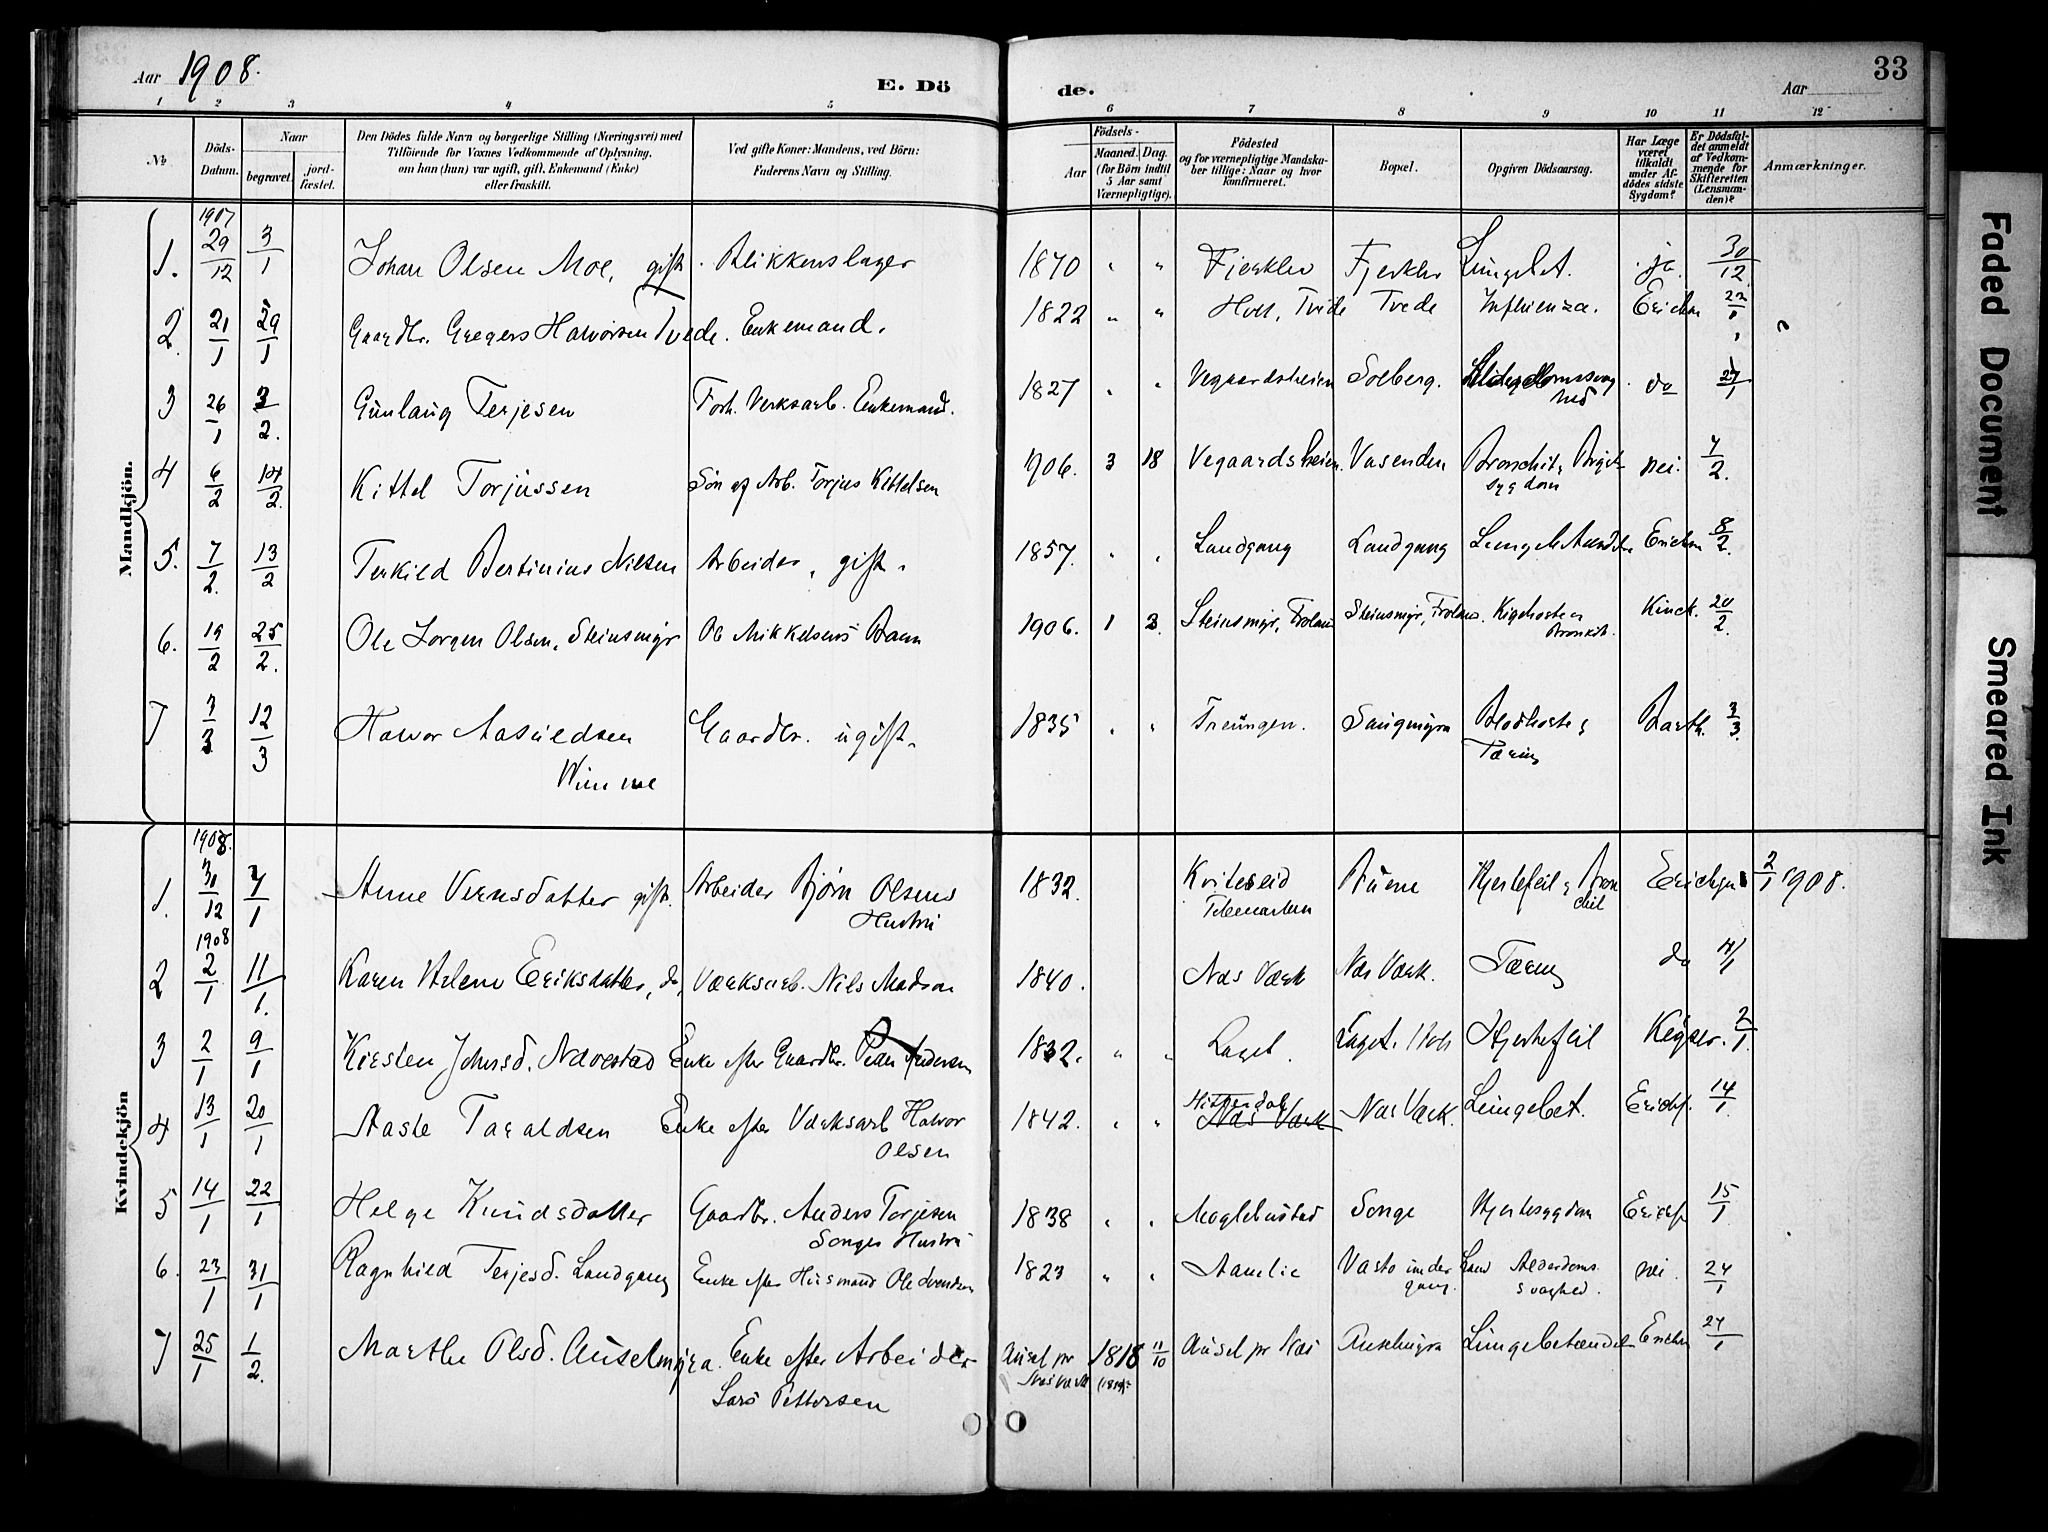 Aar 1908.
E. Dö
de.
Aar
33
1 2 3 4 5 6 7 8 9 10 11 12
No
Döds-
Datum.
Naar
begravet.
jord-
fæstet.
Den Dödes fulde Navn og borgerlige Stilling (Næringsvei) med
Tilföiende for Voxnes Vedkommende af Oplysning,
om han (hun) var ugift, gift, Enkemand (Enke)
eller fraskilt.
Ved gifte Koner: Mandens, ved Börn:
Faderens Navn og Stilling.
Födsels-
Aar
Maaned.
Dag.
(for Börn indtil
5 Aar samt
Værnepligtige).
Födested
og for værnepligtige Mandska-
ber tillige: Naar og hvor
konfirmeret.
Bopæl.
Opgiven Dödsaarsag.
Har Læge
været
tilkaldt
under Af-
dödes sidste
Sygdom?
Er Dödsfal-
det anmeldt
af Vedkom-
mende for
Skifteretten
(Lensman-
den)?
Anmærkninger.
Mandkjön.
1907
1. 29/12 3/1 Johan Olsen Moe, gift. Blikkenslager 1870 " " Fjerklev Fjerklev Lungebet. ja. 30/12
2. 21/1 29/1 Gaardbr. Gregers Halvorsen Tvede. Enkemand. 1822 " " Holt, Tvede Tvede Influenza. Erichsen 22/1
3 26/1 3/2. Gunlaug Terjesen Forh. Verksarb. Enkemand. 1827 " " Vegaardsheien Solberg. do 27/1
4 6/2 14/2. Kittel Torjussen Søn af Arb. Torjus Kittelsen 1906. 3 18 Vegaardsheien. Vasenden Bronchit,
sygdom nei. 7/2.
5. 7/2. 13/2 Terkild Bertinius Nilsen Arbeider, gift. 1857. " " Landgang Landgang Erichsen 8/2.
6. 19/2 25/2. Ole Jørgen Olsen, Steinsmyr Ole Mikkelsens Barn 1906. 1 3. Steinsmyr, Froland Steinsmyr, Froland. Kighoste og
Bronkit. Kinck. 20/2.
7 3/3 12/3 Halvor Aasuldsen
Gaardbr. ugift. 1835 " " Treungen. Saugmyra Blodhoste &
Tæring Barth. 3/3.
Kvindekjön
1908.
1. 30/12 7/1 Anne Vernsdatter gift. Arbeider Bjørn Olsens
Hustru 1832. Kviteseid
Telemarken Hjertefeil & Bron
chit Erichsen 2/1 1908.
1908
2 2/1 11/1. Karen Helene Eriksdatter, do, Værksarb. Nils Madsen 1840. Næs Værk Næs Værk. Tæring do 4/1
3 2/1 9/1 Kirsten Johnsd. Navestad Enke efter Gaardbr. Peder Andersen 1832. " " Laget. Laget, Holt Hjertefeil Keyser. 2/1.
4 13/1 20/1 Aaste Taraldsen Enke efter Værksarb Halvor
Olsen 1842. " " Hitterdal
Næs Værk Næs Værk. Lungebet. Erichs. 14/1.
5 14/1 22/1 Helge Knudsdatter Gaardbr. Anders Terjesen
Songes Hustru 1838 " " Moglebustad Songe Hjertesygdom Erichs 15/1
6. 23/1 31/1 Ragnhild Terjesd. Landgang Enke efter Husmand Ole Svendsen 1823 " " Aamlie Vasto under Land
gang. Alderdoms.
svaghed. nei. 24/1
7 25/1 1/2. Marthe Olsd. Auselmyra. Enke efter Arbeider
Lars Pettersen Ausel pr
Næs Værk 1818 11/10 Ausel pr Næs Auselmyra Lungebetændelse Erichsen 27/1
Faded Document
Smeared Ink